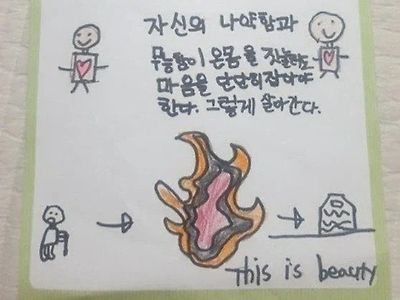 자신의 나약함과
무능함이 온몸을 짓눌러도
마음을 단단히잡아야
한다. 그렇게 살아간다.
This is beauty